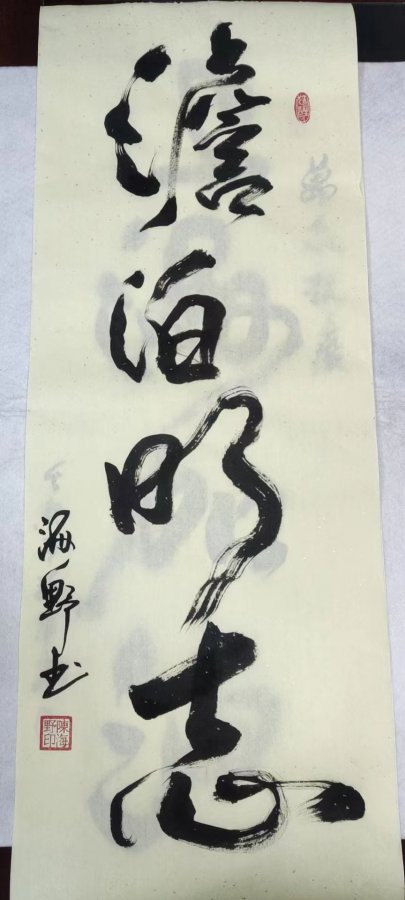 澹泊明志
海野书
陳海野印